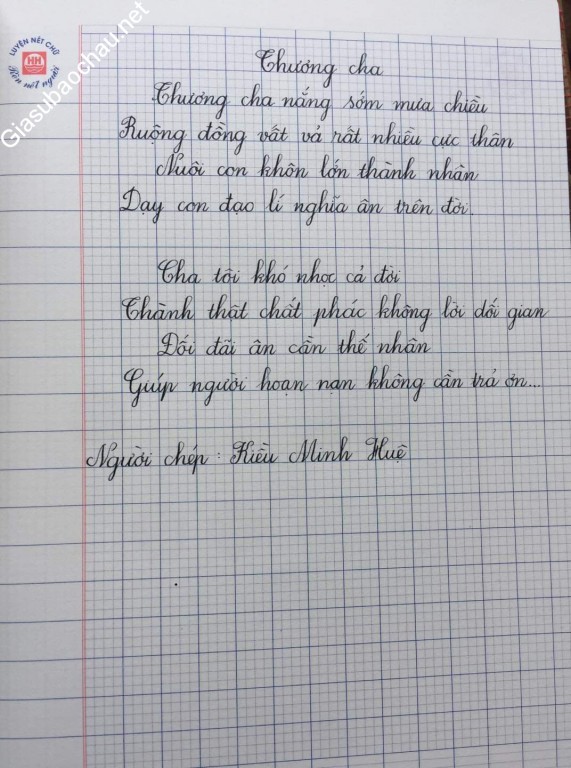 LUYỆN NẾT CHỮ
HH
Rèn nết người
Giasubaochau.net
Thương cha
Thương cha nắng sớm mưa chiều
Ruộng đồng vất vả rất nhiều cực thân
Nuôi con khôn lớn thành nhân
Dạy con đạo lí nghĩa ân trên đời.
Cha tôi khó nhọc cả đời
Thành thật chất phác không lời dối gian
Đối đãi ân cần thế nhân
Giúp người hoạn nạn không cần trả ơn...
Người chép : Kiều Minh Huệ